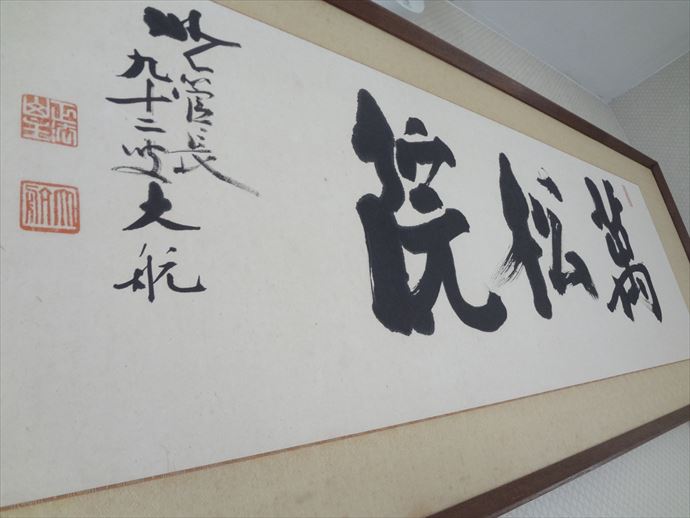 萬松院
管長
九十二叟大航